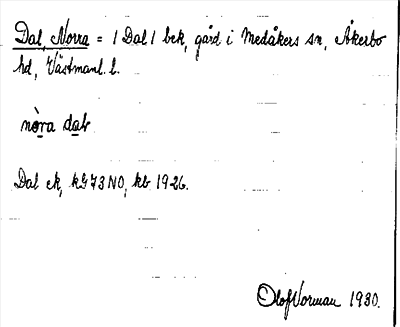 Dal, Norra = 1 Dal 1 bek, gård i Medåkers sn, Åkerbo
hd, Västmanl. l.
nòra dal
Dal ek, kG 73 NO, kb 1926.
Olof Vorman 1930.